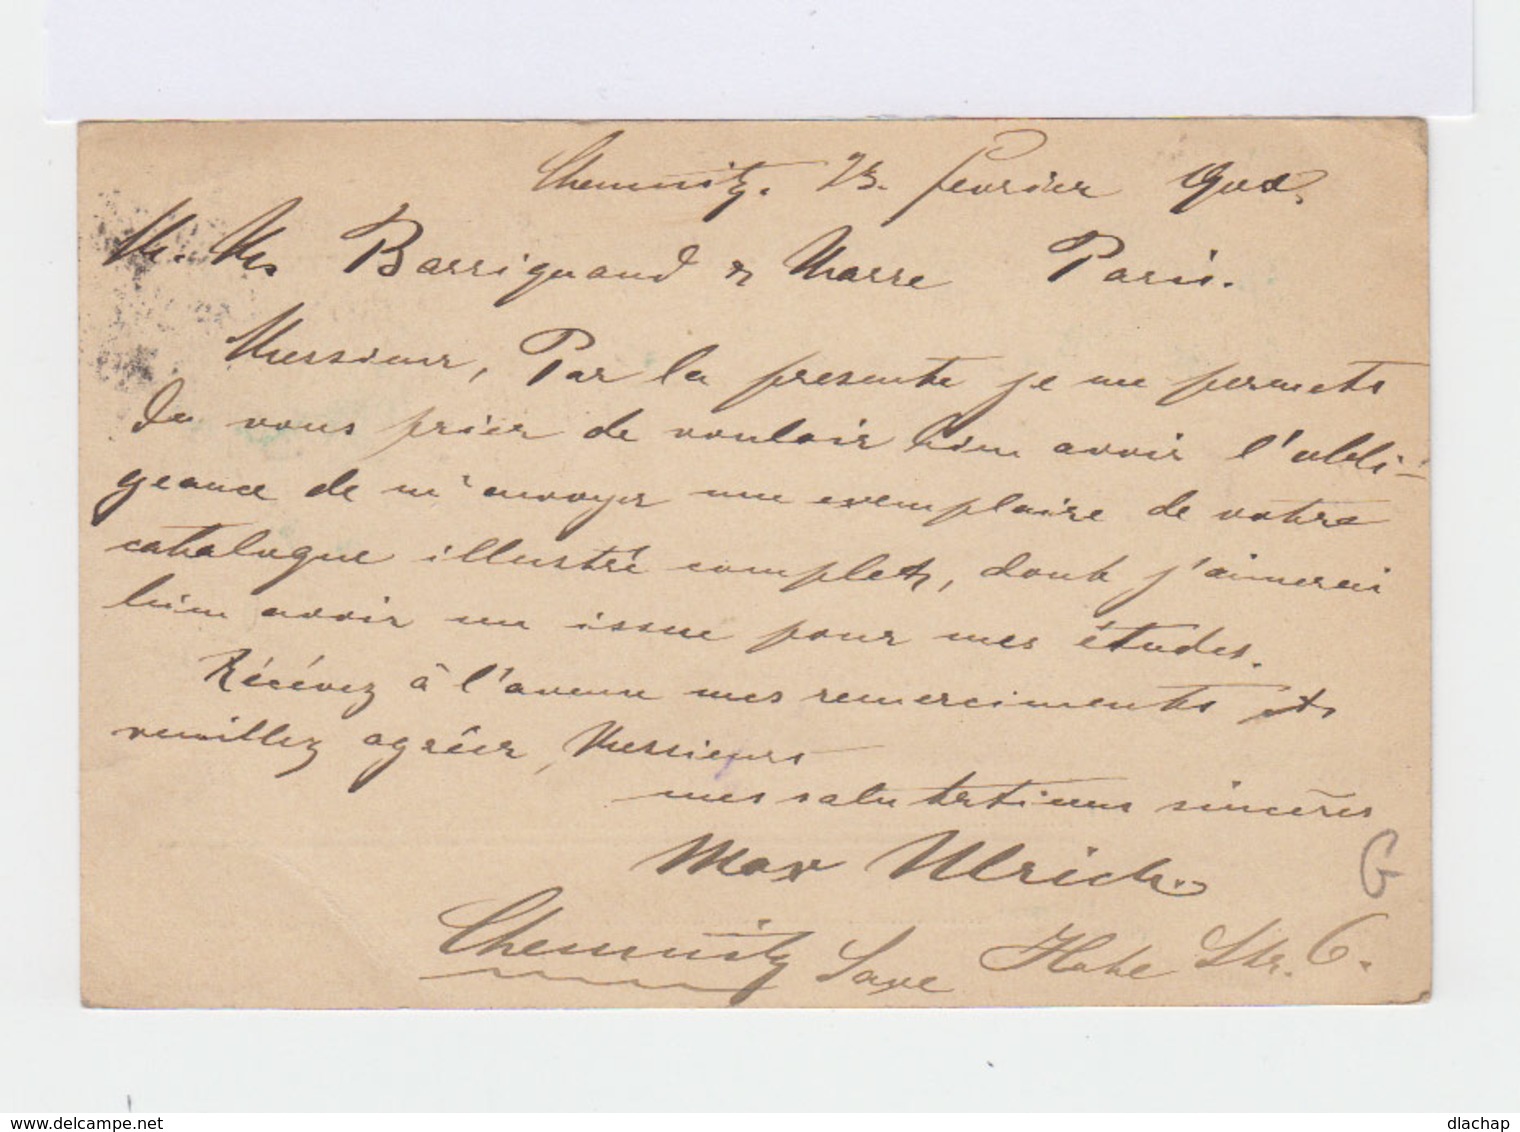 Chemnitz. 23. fevrier
M. Ms Barriquand & Marre Paris.
Messieurs, Par la presente je me permets
de vous prier de vouloir bien avoir l'obli-
geance de m'envoyer une exemplaire de votre
catalogue illustré complet, dont j'aimerai
bien avoir un issue pour mes études.
Récévez à l'avenue mes remerciments et
veuillez agréer, Messieurs
mes salutations sincères
Max Ulrich.
Chemnitz Saxe Hohe Str. 6.
G
delcampe.net
dlachap